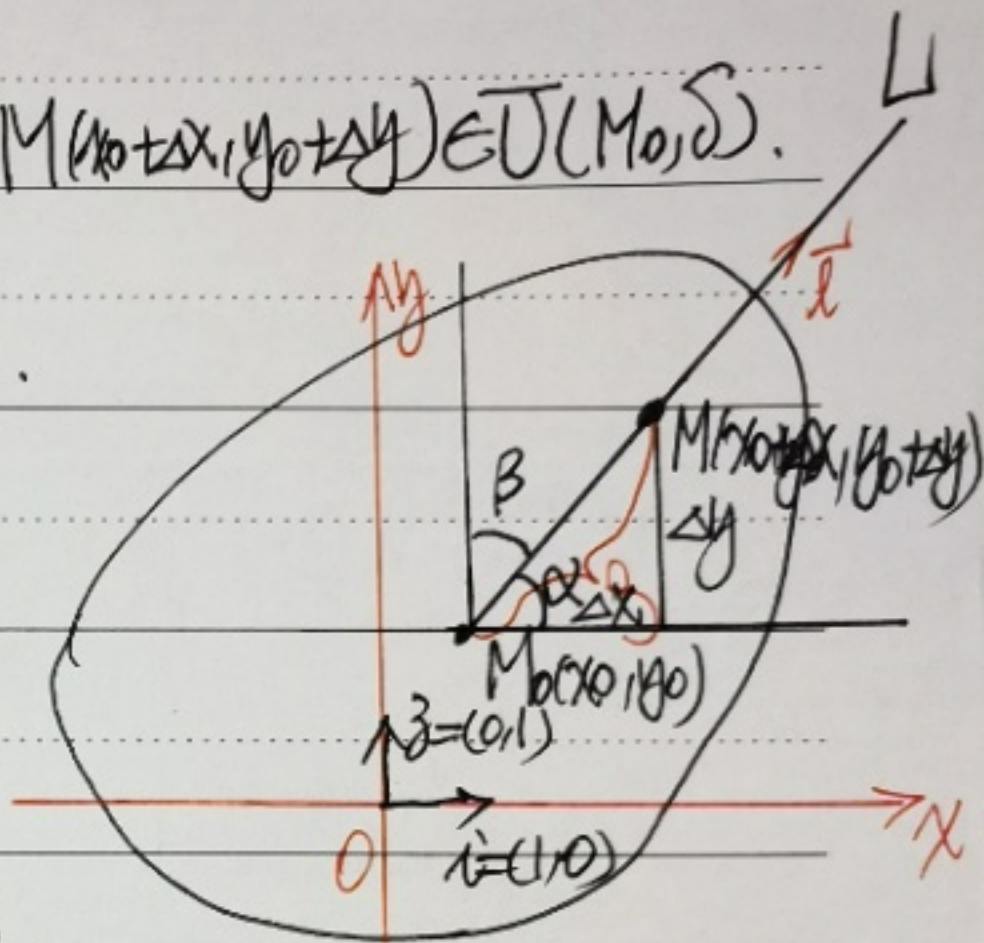 L
M(x₀+Δx,y₀+Δy)∈U(M₀,δ).
l
y
M(x₀+Δx,y₀+Δy)
β
Δy
α
ρ
Δx
M₀(x₀,y₀)
j=(0,1)
x
O
i=(1,0)